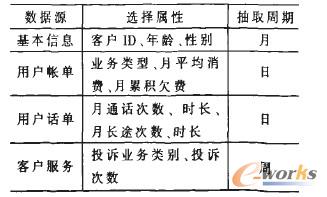 数据源 选择属性 抽取周期
基本信息 客户ID、年龄、性别 月
用户帐单 业务类型、月平均消 日
费、月累积欠费
用户话单 月通话次数、时长、 日
月长途次数、时长
客户服务 投诉业务类别、投诉 周
次数
e-works